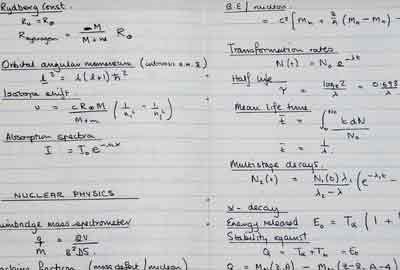 Rydberg Const.
R∞ = R∞
R hydrogen = M / M + m R∞
Orbital angular momentum
L² = l(l+1)ħ²
Isotope shift.
υ = cR∞M / M+m (1/n₁² - 1/n₂²)
Absorption spectra
I = I₀e
NUCLEAR PHYSICS
mass spectrometer
q/M =
fraction (mass defect / nucleon)
B.E / nucleon
= c² [Mn + (Mn - Mn) -
Transformation rates
N(t) = N₀ e^-λt
Half life
τ = loge2 / λ = 0.693
Mean life time
t̄ = ∫ t dN / N₀
t̄ = 1/λ
Multistage decays.
N₂(t) = N₁(0)λ₁ / λ₂ - λ (e^-λ₁t -
α - decay
Energy released E₀ = Tα (1 +
Stability against
Q = Tα + Th = E₀
Q = M (Z,A) - M (Z-2, A-4)